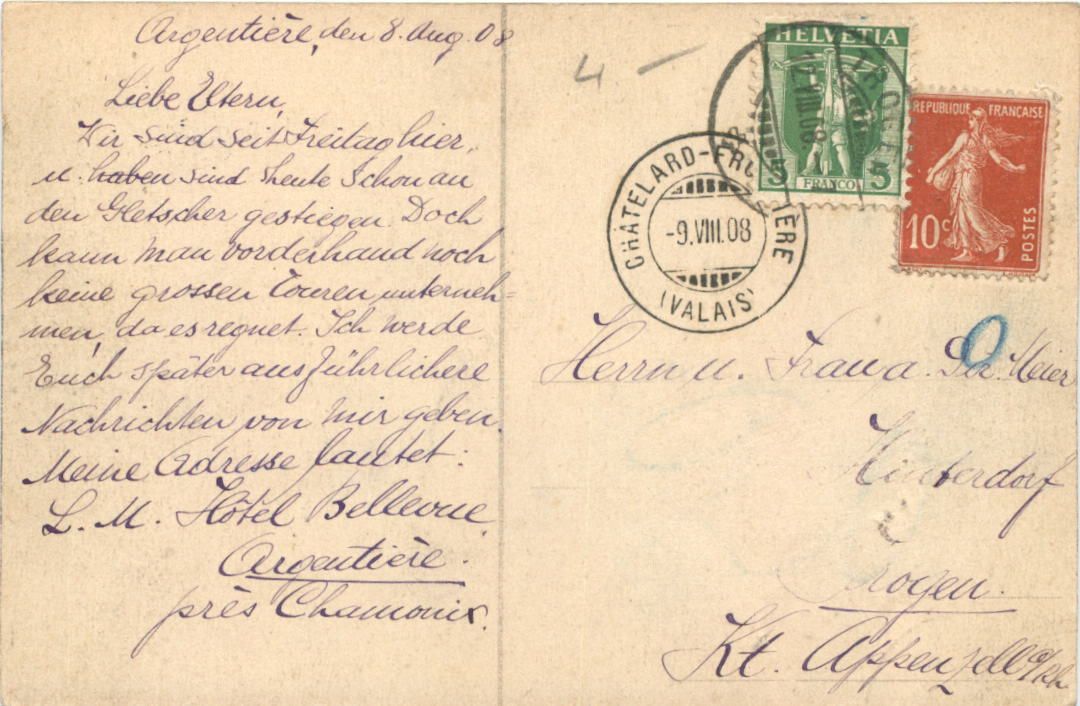 Argentière, den 8. Aug. 08
Liebe Eltern,
Wir sind seit Freitag hier,
u. haben sind heute schon an
den Gletscher gestiegen. Doch
kann man vorderhand noch
keine grossen Touren unterneh=
men, da es regnet. Ich werde
Euch später ausführlichere
Nachrichten von mir geben.
Meine Adresse lautet:
L. M. Hôtel Bellevue
Argentière.
près Chamonix.
4 —
HELVETIA
5 5
FRANCO
12.VIII.08
CHÂTELARD-FRONTIÈRE
-9.VIII.08
(VALAIS)
REPUBLIQUE FRANÇAISE
10c
POSTES
Herrn u. Frau a. Meier
Hinterdorf
Trogen.
Kt. Appenzell a/Rh